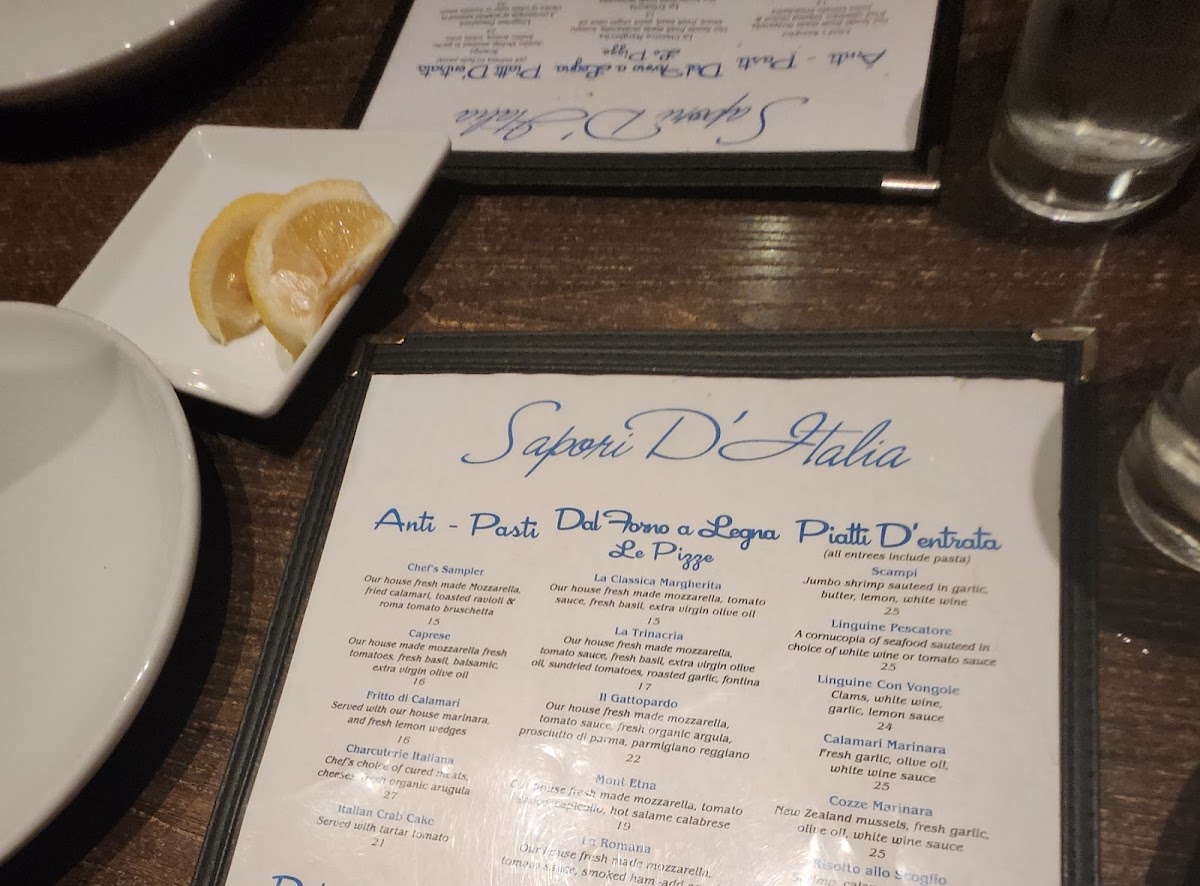 Sapori D'Italia
Anti - Pasti
Chef's Sampler
Our house fresh made Mozzarella,
fried calamari, toasted ravioli &
roma tomato bruschetta
15
Caprese
Our house made mozzarella fresh
tomatoes, fresh basil, balsamic,
extra virgin olive oil
16
Fritto di Calamari
Served with our house marinara,
and fresh lemon wedges
16
Charcuterie Italiana
Chef's choice of cured meats,
cheeses, fresh organic arugula
27
Italian Crab Cake
Served with tartar tomato
21
Dal Forno a Legna
Le Pizze
La Classica Margherita
Our house fresh made mozzarella, tomato
sauce, fresh basil, extra virgin olive oil
15
La Trinacria
Our house fresh made mozzarella,
tomato sauce, fresh basil, extra virgin olive
oil, sundried tomatoes, roasted garlic, fontina
17
Il Gattopardo
Our house fresh made mozzarella,
tomato sauce, fresh organic argula,
prosciutto di parma, parmigiano reggiano
22
Mont Etna
Our house fresh made mozzarella, tomato
sauce, capicollo, hot salame calabrese
19
La Romana
Our house fresh made mozzarella,
tomato sauce, smoked ham -add
Piatti D'entrata
(all entrees include pasta)
Scampi
Jumbo shrimp sauteed in garlic,
butter, lemon, white wine
25
Linguine Pescatore
A cornucopia of seafood sauteed in
choice of white wine or tomato sauce
25
Linguine Con Vongole
Clams, white wine,
garlic, lemon sauce
24
Calamari Marinara
Fresh garlic, olive oil,
white wine sauce
25
Cozze Marinara
New Zealand mussels, fresh garlic,
olive oil, white wine sauce
25
Risotto allo Scoglio
Sapori D'Italia
Anti - Pasti
Dal Forno a Legna
Le Pizze
Piatti D'entrata